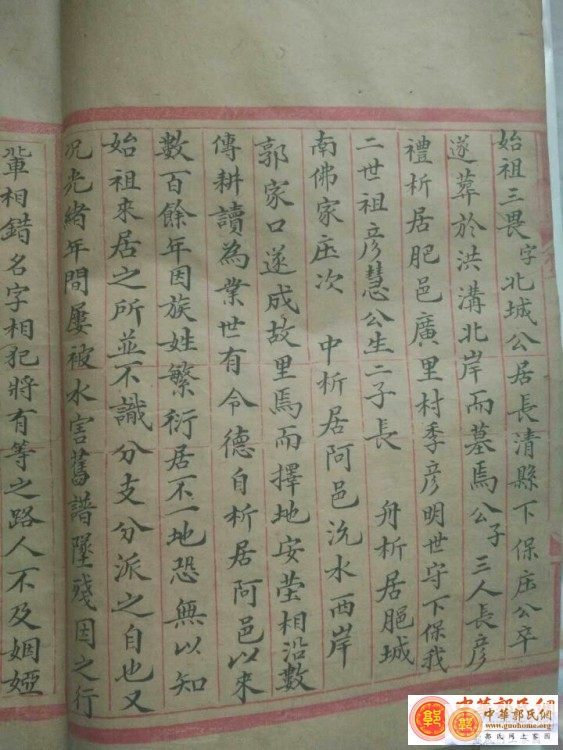 始祖三畏字北城公居長清縣下保庄公卒
遂葬於洪溝北岸而墓焉公子三人長彦
禮析居肥邑廣里村季彦明世守下保我
二世祖彦慧公生二子長 舟析居肥城
南佛家庄次 中析居阿邑汶水西岸
郭家口遂成故里焉而擇地安塋相沿數
傳耕讀為業世有令德自析居阿邑以來
數百餘年因族姓繁衍居不一地恐無以知
始祖來居之所並不識分支分派之自也又
况光緒年間屢被水害舊譜墜殘因之行
輩相錯名字相犯將有等之路人不及姻婭
中華郭氏網
www.guohome.org
郭氏网上家园